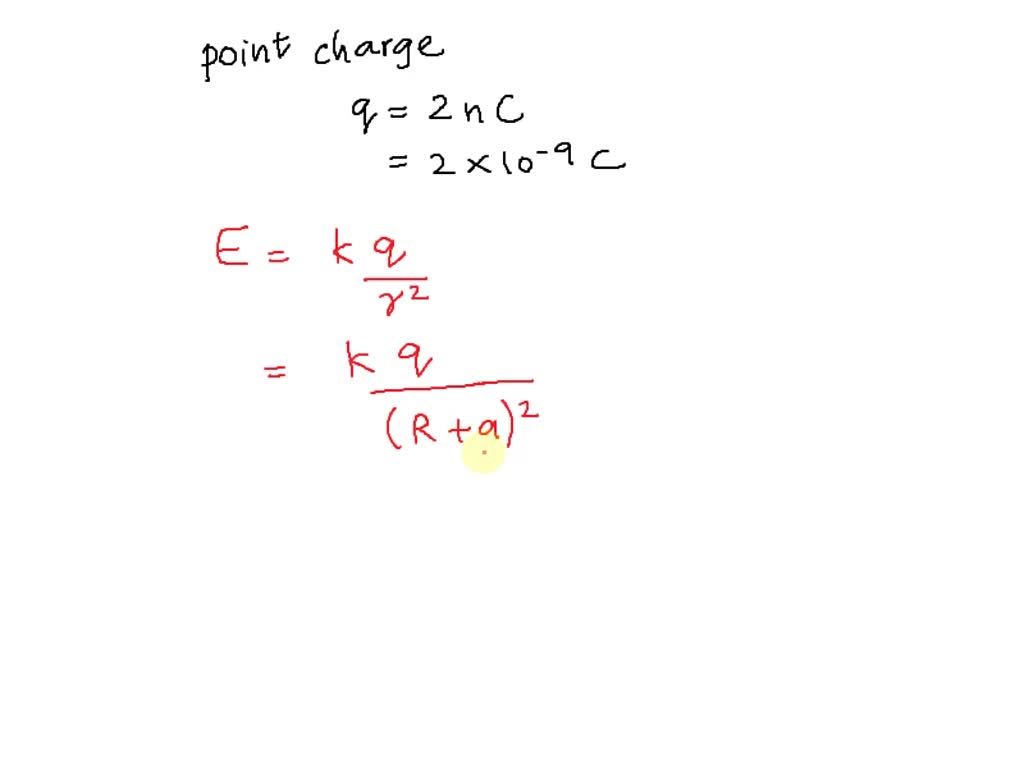 point charge
q = 2 n C
= 2 × 10⁻⁹ C
E = k q / r²
= k q / (R + a)²